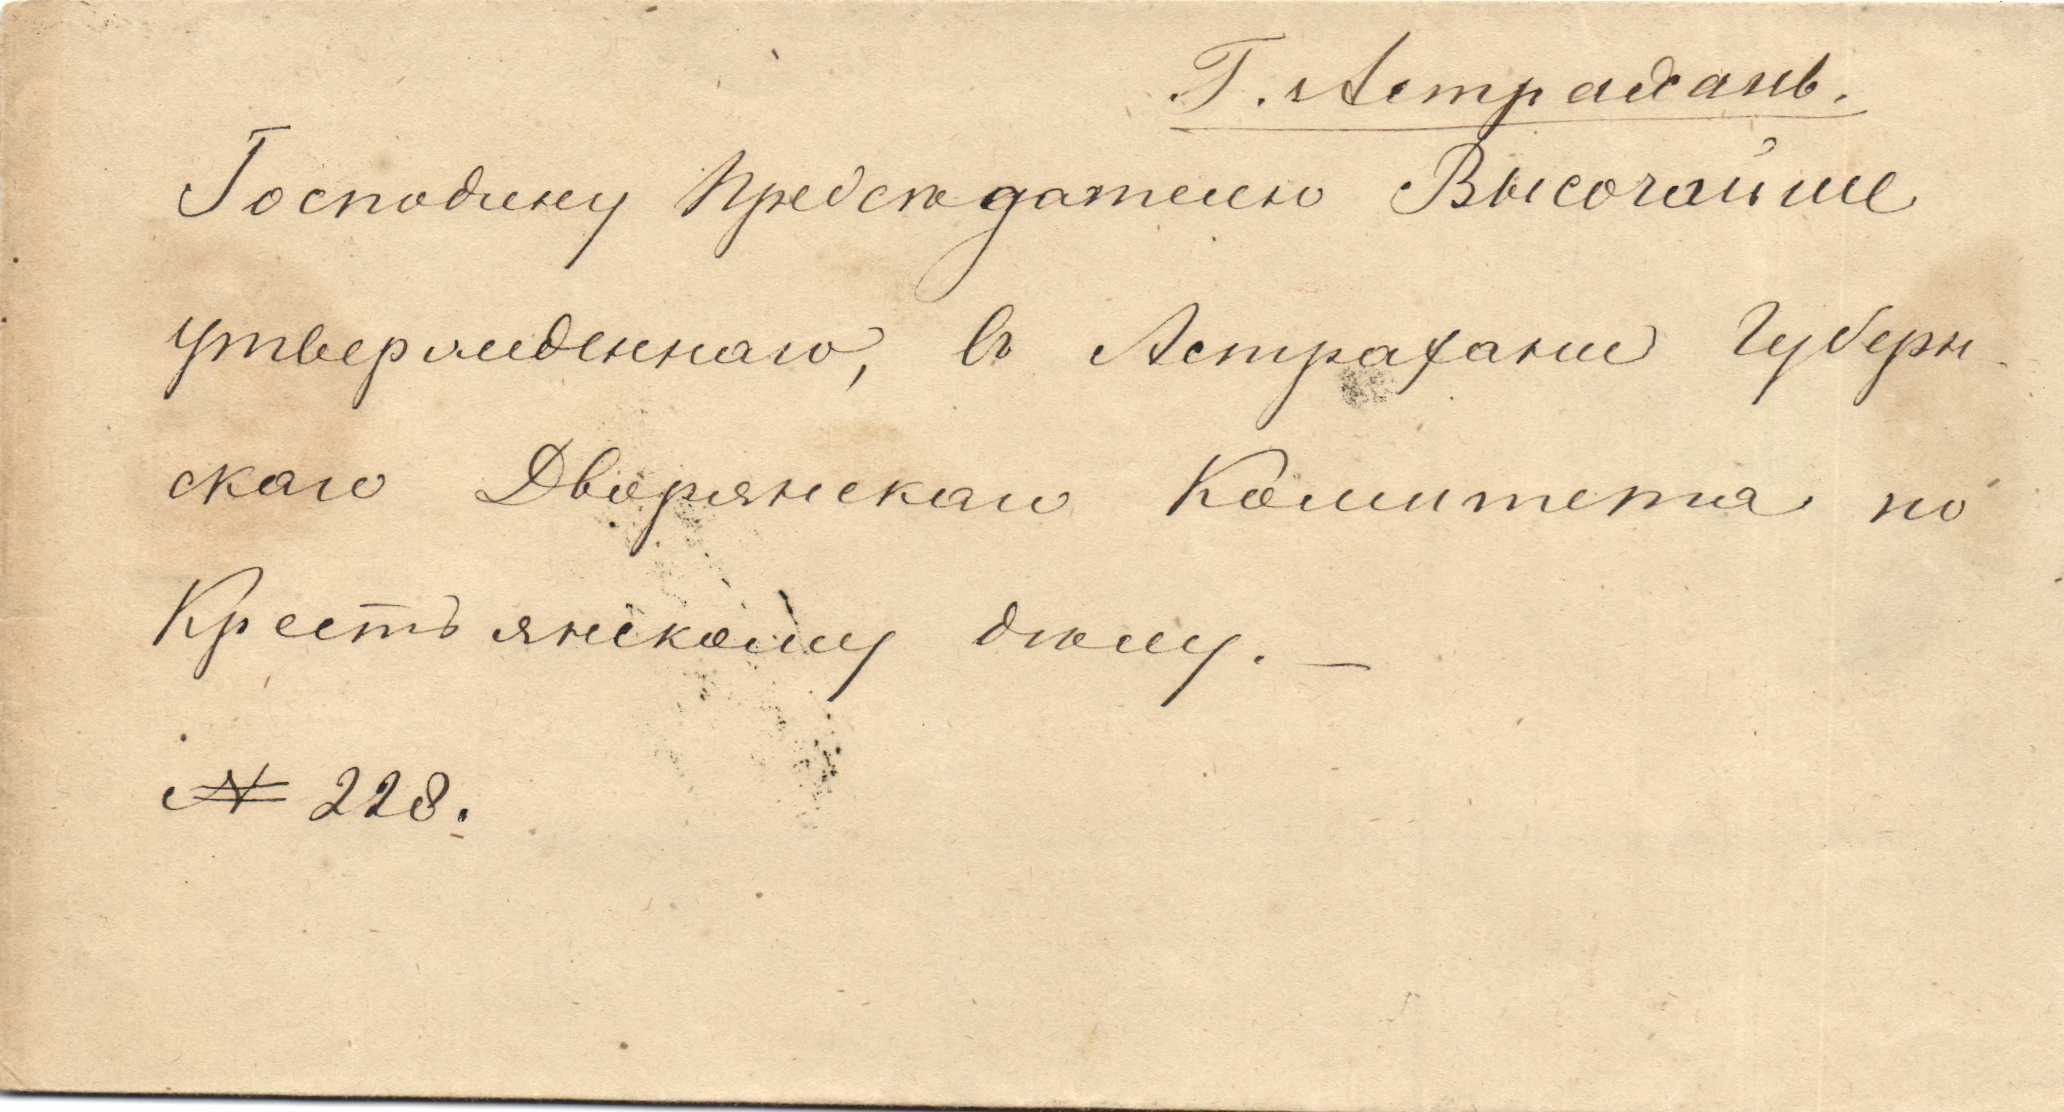 Г. Астрахань.
Господину Предсѣдателю Высочайше
утвержденнаго, въ Астрахани Губерн-
скаго Дворянскаго Комитета по
Крестьянскому дѣлу. —
№ 228.